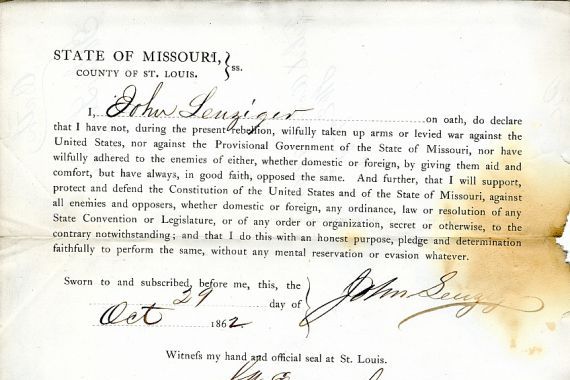 STATE OF MISSOURI, } ss.
COUNTY OF ST. LOUIS.
I, John Lenziger on oath, do declare
that I have not, during the present rebellion, wilfully taken up arms or levied war against the
United States, nor against the Provisional Government of the State of Missouri, nor have
wilfully adhered to the enemies of either, whether domestic or foreign, by giving them aid and
comfort, but have always, in good faith, opposed the same. And further, that I will support,
protect and defend the Constitution of the United States and of the State of Missouri, against
all enemies and opposers, whether domestic or foreign, any ordinance, law or resolution of any
State Convention or Legislature, or of any order or organization, secret or otherwise, to the
contrary notwithstanding; and that I do this with an honest purpose, pledge and determination
faithfully to perform the same, without any mental reservation or evasion whatever.
Sworn to and subscribed, before me, this, the
29 day of
Oct 1862
John
Witness my hand and official seal at St. Louis.